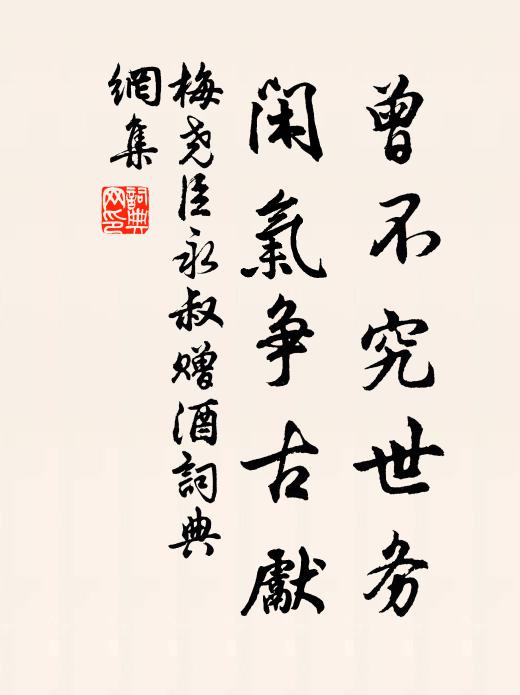 曾不究世务
闲氣争古獻
梅尧臣永叔赠酒詞典
網集
詞典網印